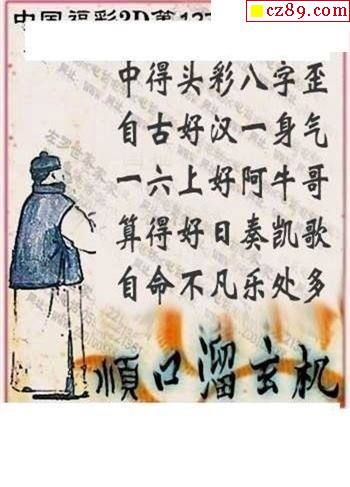 cz89.com
中国福彩3D第
中得头彩八字歪
自古好汉一身气
一六上好阿牛哥
算得好日奏凯歌
自命不凡乐处多
順口溜玄机